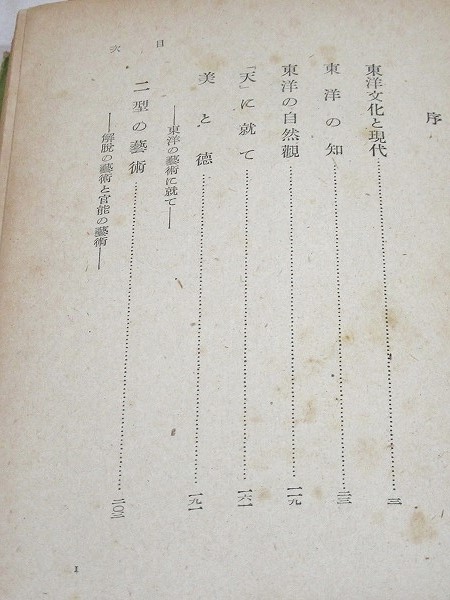 序
東洋文化と現代……三
東洋の知……二三
東洋の自然觀……一一九
「天」に就て……一六一
美と德……一九一
――東洋の藝術に就て――
二型の藝術……二〇三
――解脫の藝術と官能の藝術――
目次
1